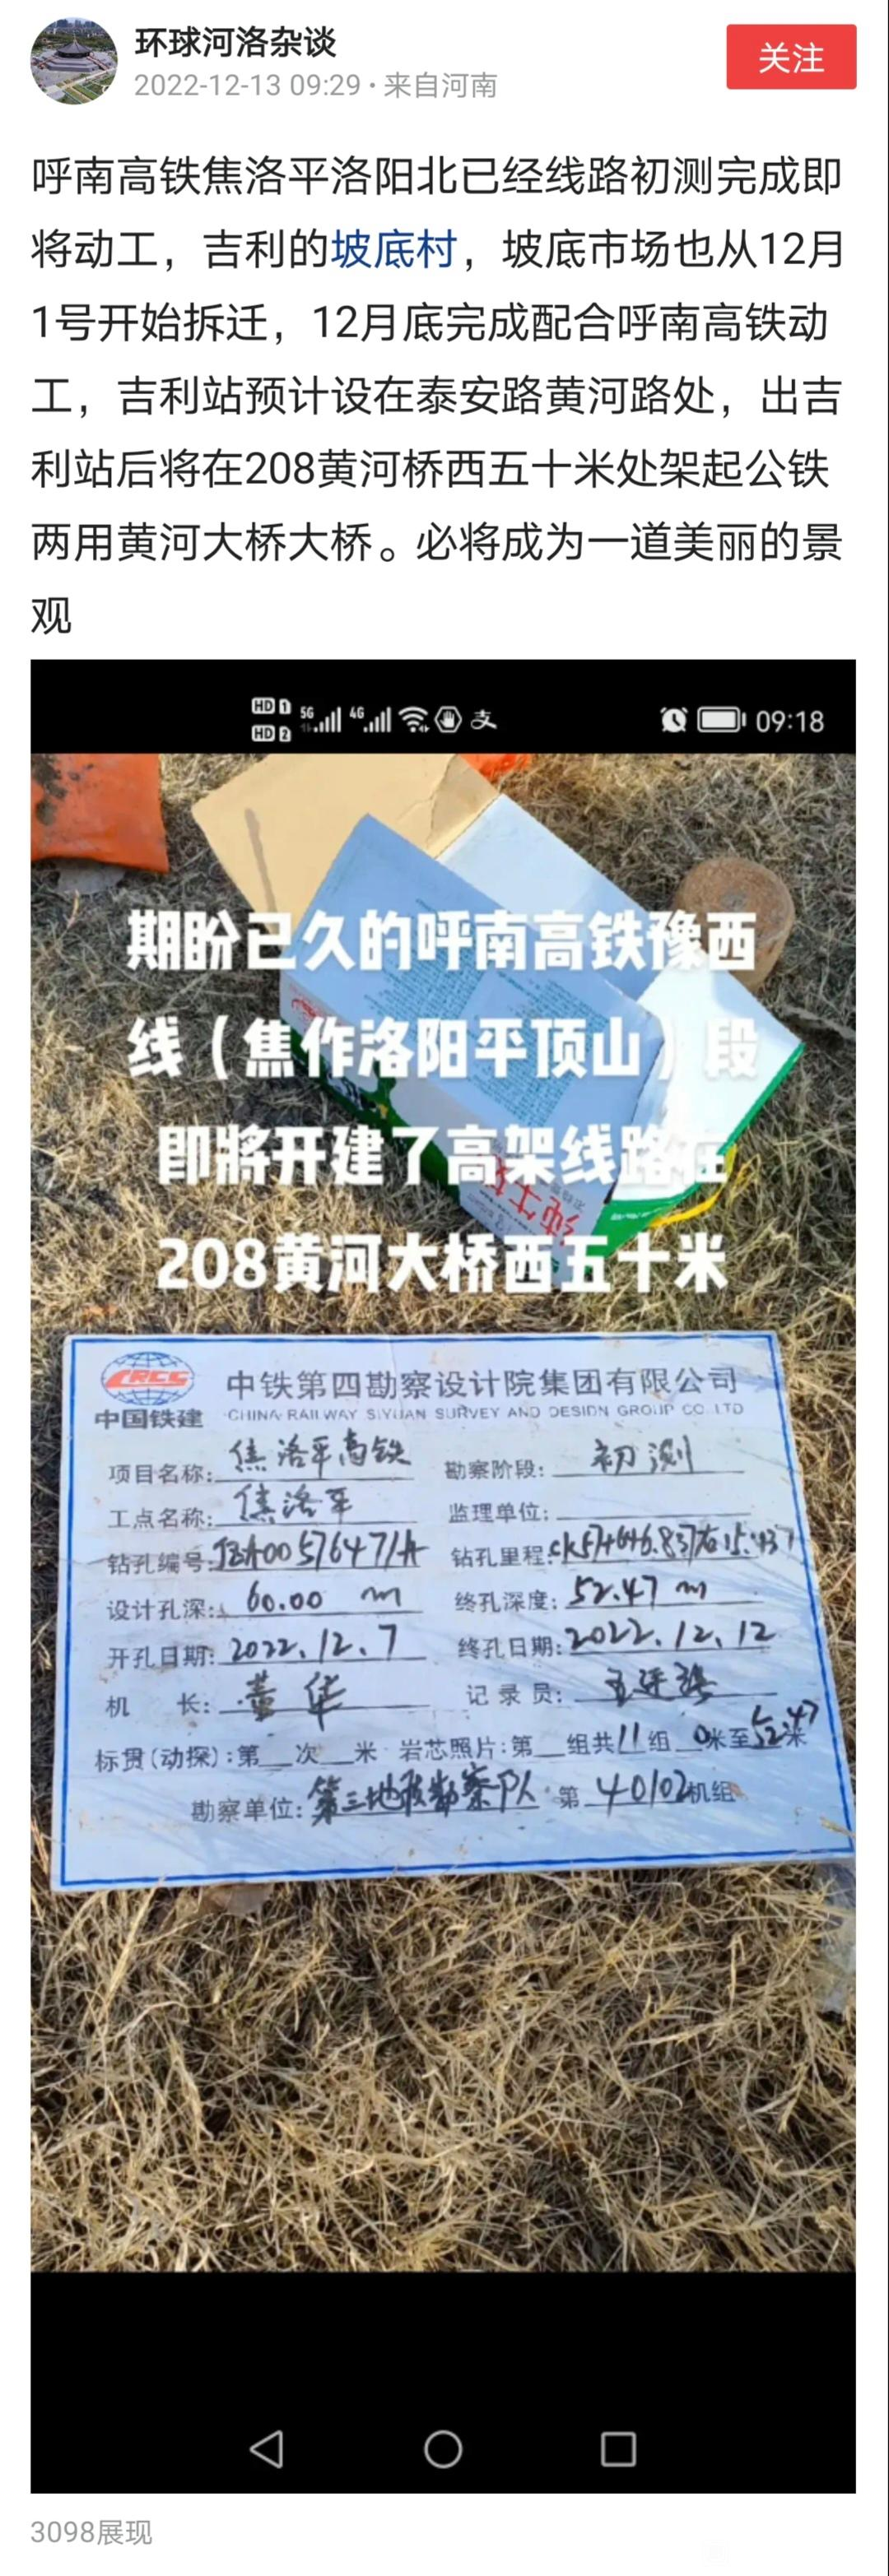 环球河洛杂谈
2022-12-13 09:29·来自河南
关注
呼南高铁焦洛平洛阳北已经线路初测完成即
将动工，吉利的坡底村，坡底市场也从12月
1号开始拆迁，12月底完成配合呼南高铁动
工，吉利站预计设在泰安路黄河路处，出吉
利站后将在208黄河桥西五十米处架起公铁
两用黄河大桥大桥。必将成为一道美丽的景
观
HD 1 5G 4G 支 09:18
HD 2
期盼已久的呼南高铁豫西
线（焦作洛阳平顶山）段
即將开建了高架线路在
208黄河大桥西五十米
CRCC 中铁第四勘察设计院集团有限公司
中国铁建 CHINA RAILWAY SIYUAN SURVEY AND DESIGN GROUP CO. LTD
项目名称: 焦洛平高铁 勘察阶段: 初测
工点名称: 焦洛平 监理单位:
钻孔编号: 钻孔里程:
设计孔深: 60.00 m 终孔深度: 52.47 m
开孔日期: 2022.12.7 终孔日期: 2022.12.12
机 长: 董华 记录员:
标贯(动探):第__次__米 岩芯照片:第__组共11组 0米至52.47米
勘察单位: 第三地质勘察队 第40102机组
3098展现